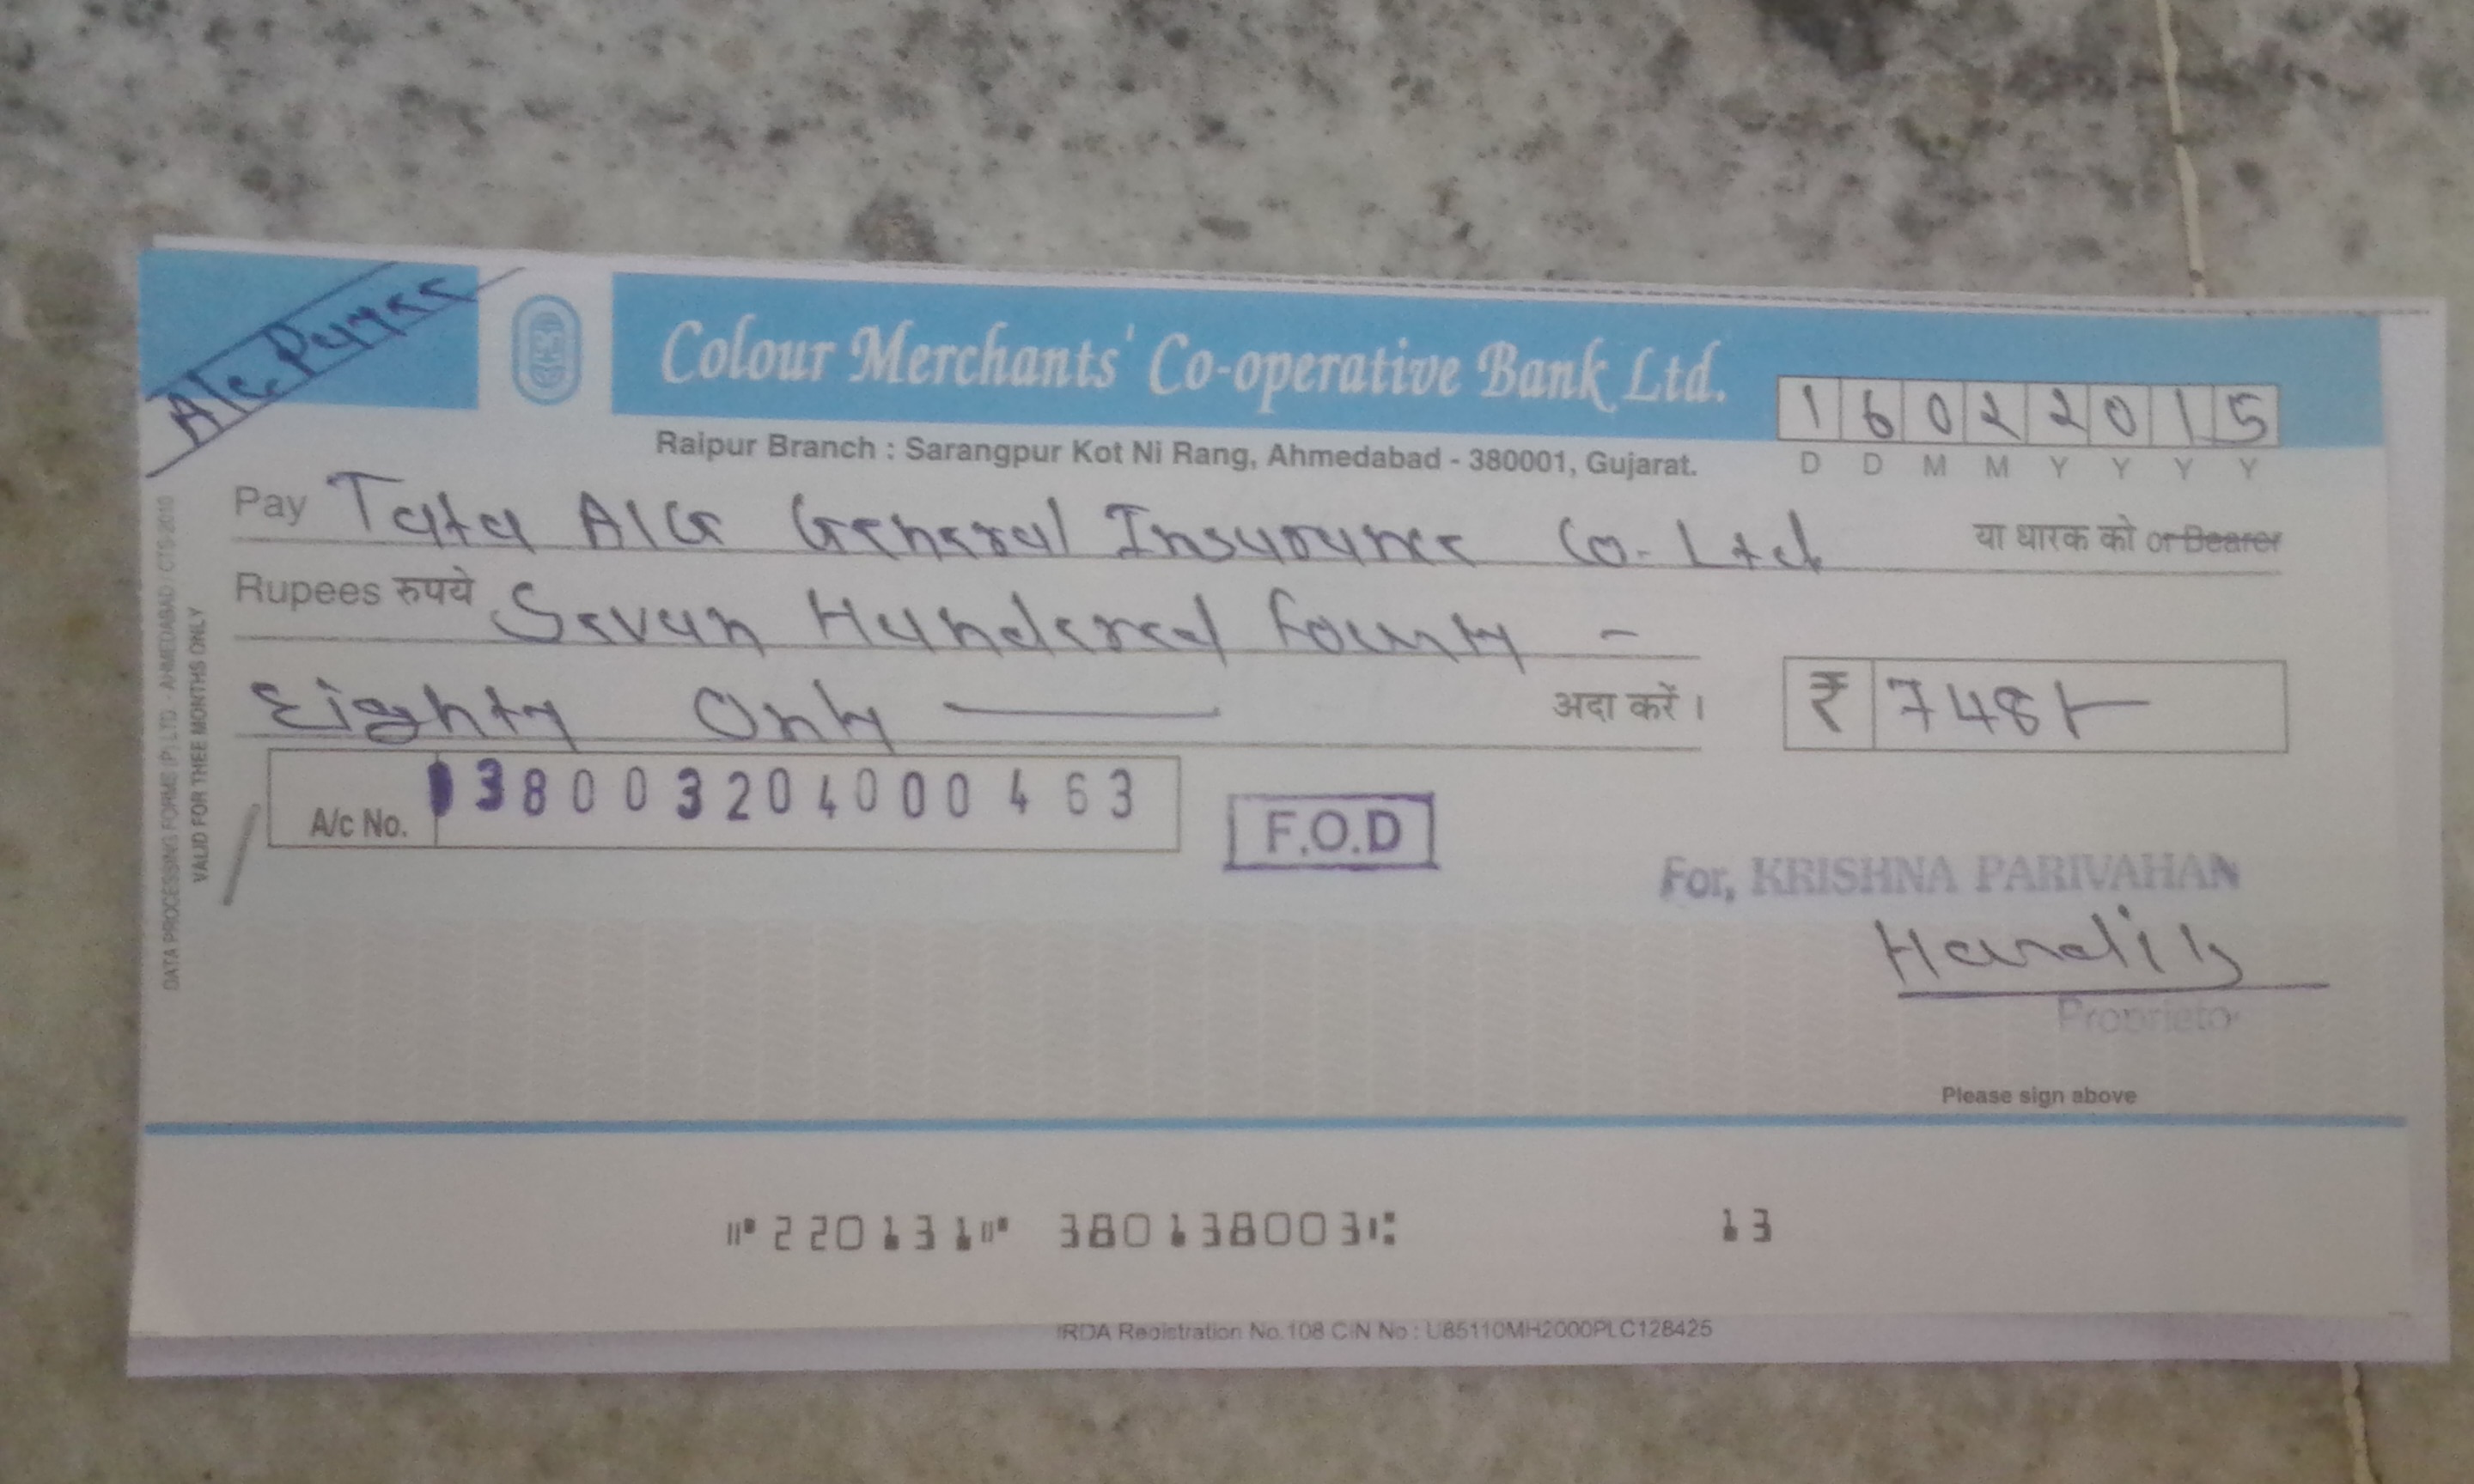 A/c. Payee
Colour Merchants' Co-operative Bank Ltd.
Raipur Branch : Sarangpur Kot Ni Rang, Ahmedabad - 380001, Gujarat.
16022015
D D M M Y Y Y Y
Pay Tata AIG General Insurance Co. Ltd या धारक को or Bearer
Rupees रुपये Sevan Hundered Fourty -
Eighty Only — अदा करें।
₹ 748/-
A/c No. 38003204000463
F.O.D
For, KRISHNA PARIVAHAN
Hardik
Proprietor
Please sign above
DATA PROCESSING FORMS (P) LTD. - AHMEDABAD / CTS-2010
VALID FOR THEE MONTHS ONLY
⑈220131⑈ 380138003⑆ 13
IRDA Registration No.108 CIN No : U85110MH2000PLC128425